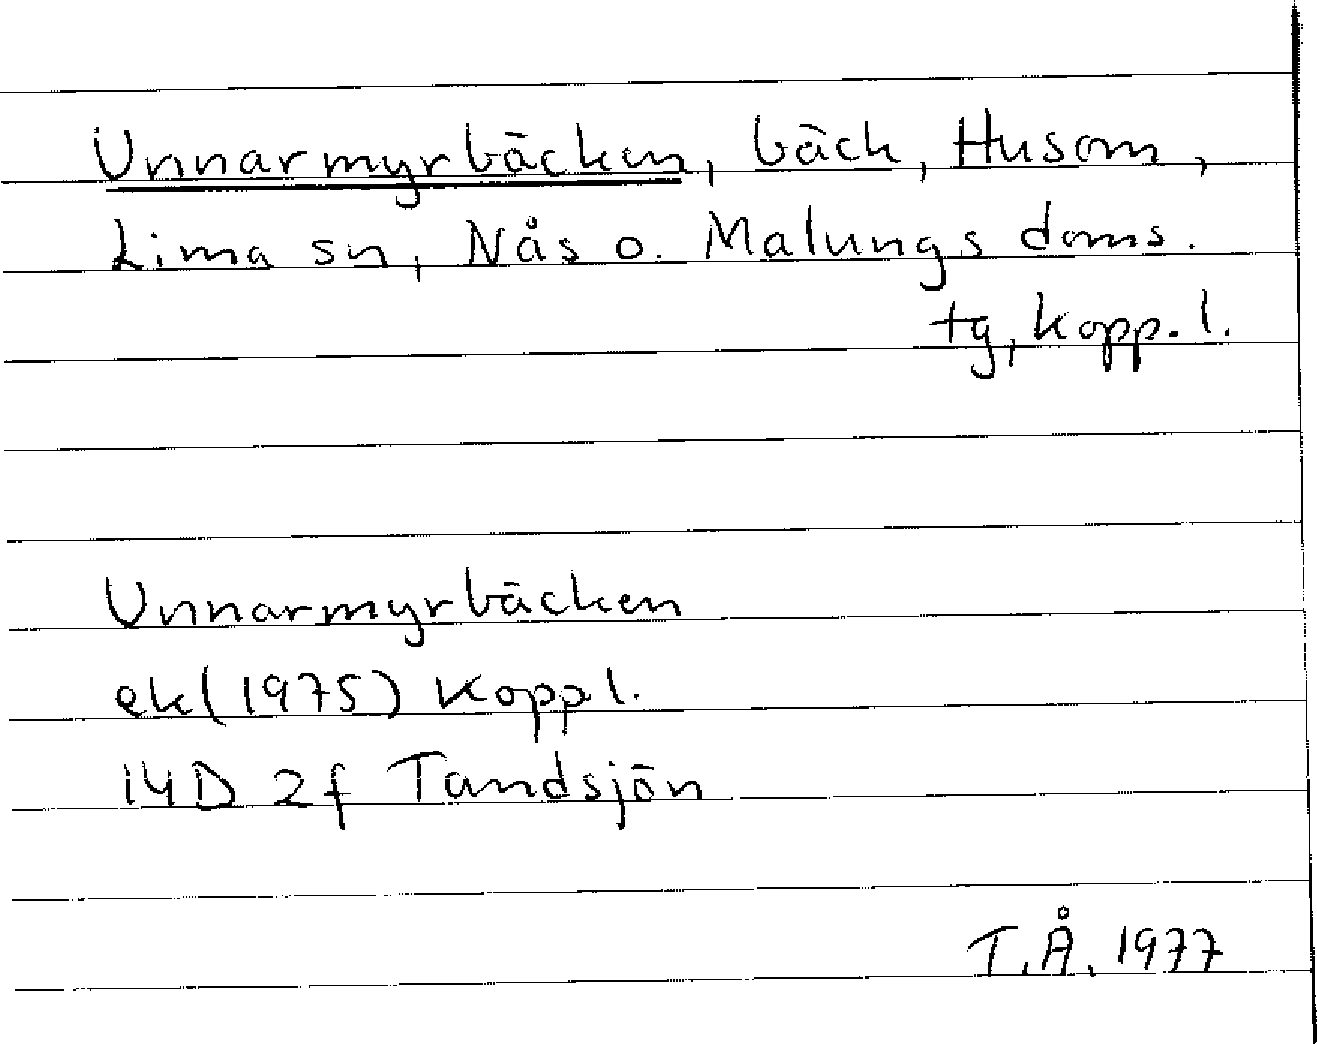 Unnarmyrbäcken, bäck, Husom,
Lima sn, Nås o. Malungs doms.
tg, Kopp. l.
Unnarmyrbäcken
ek (1975) Kopp l.
14D 2f Tandsjön
T.Å. 1977